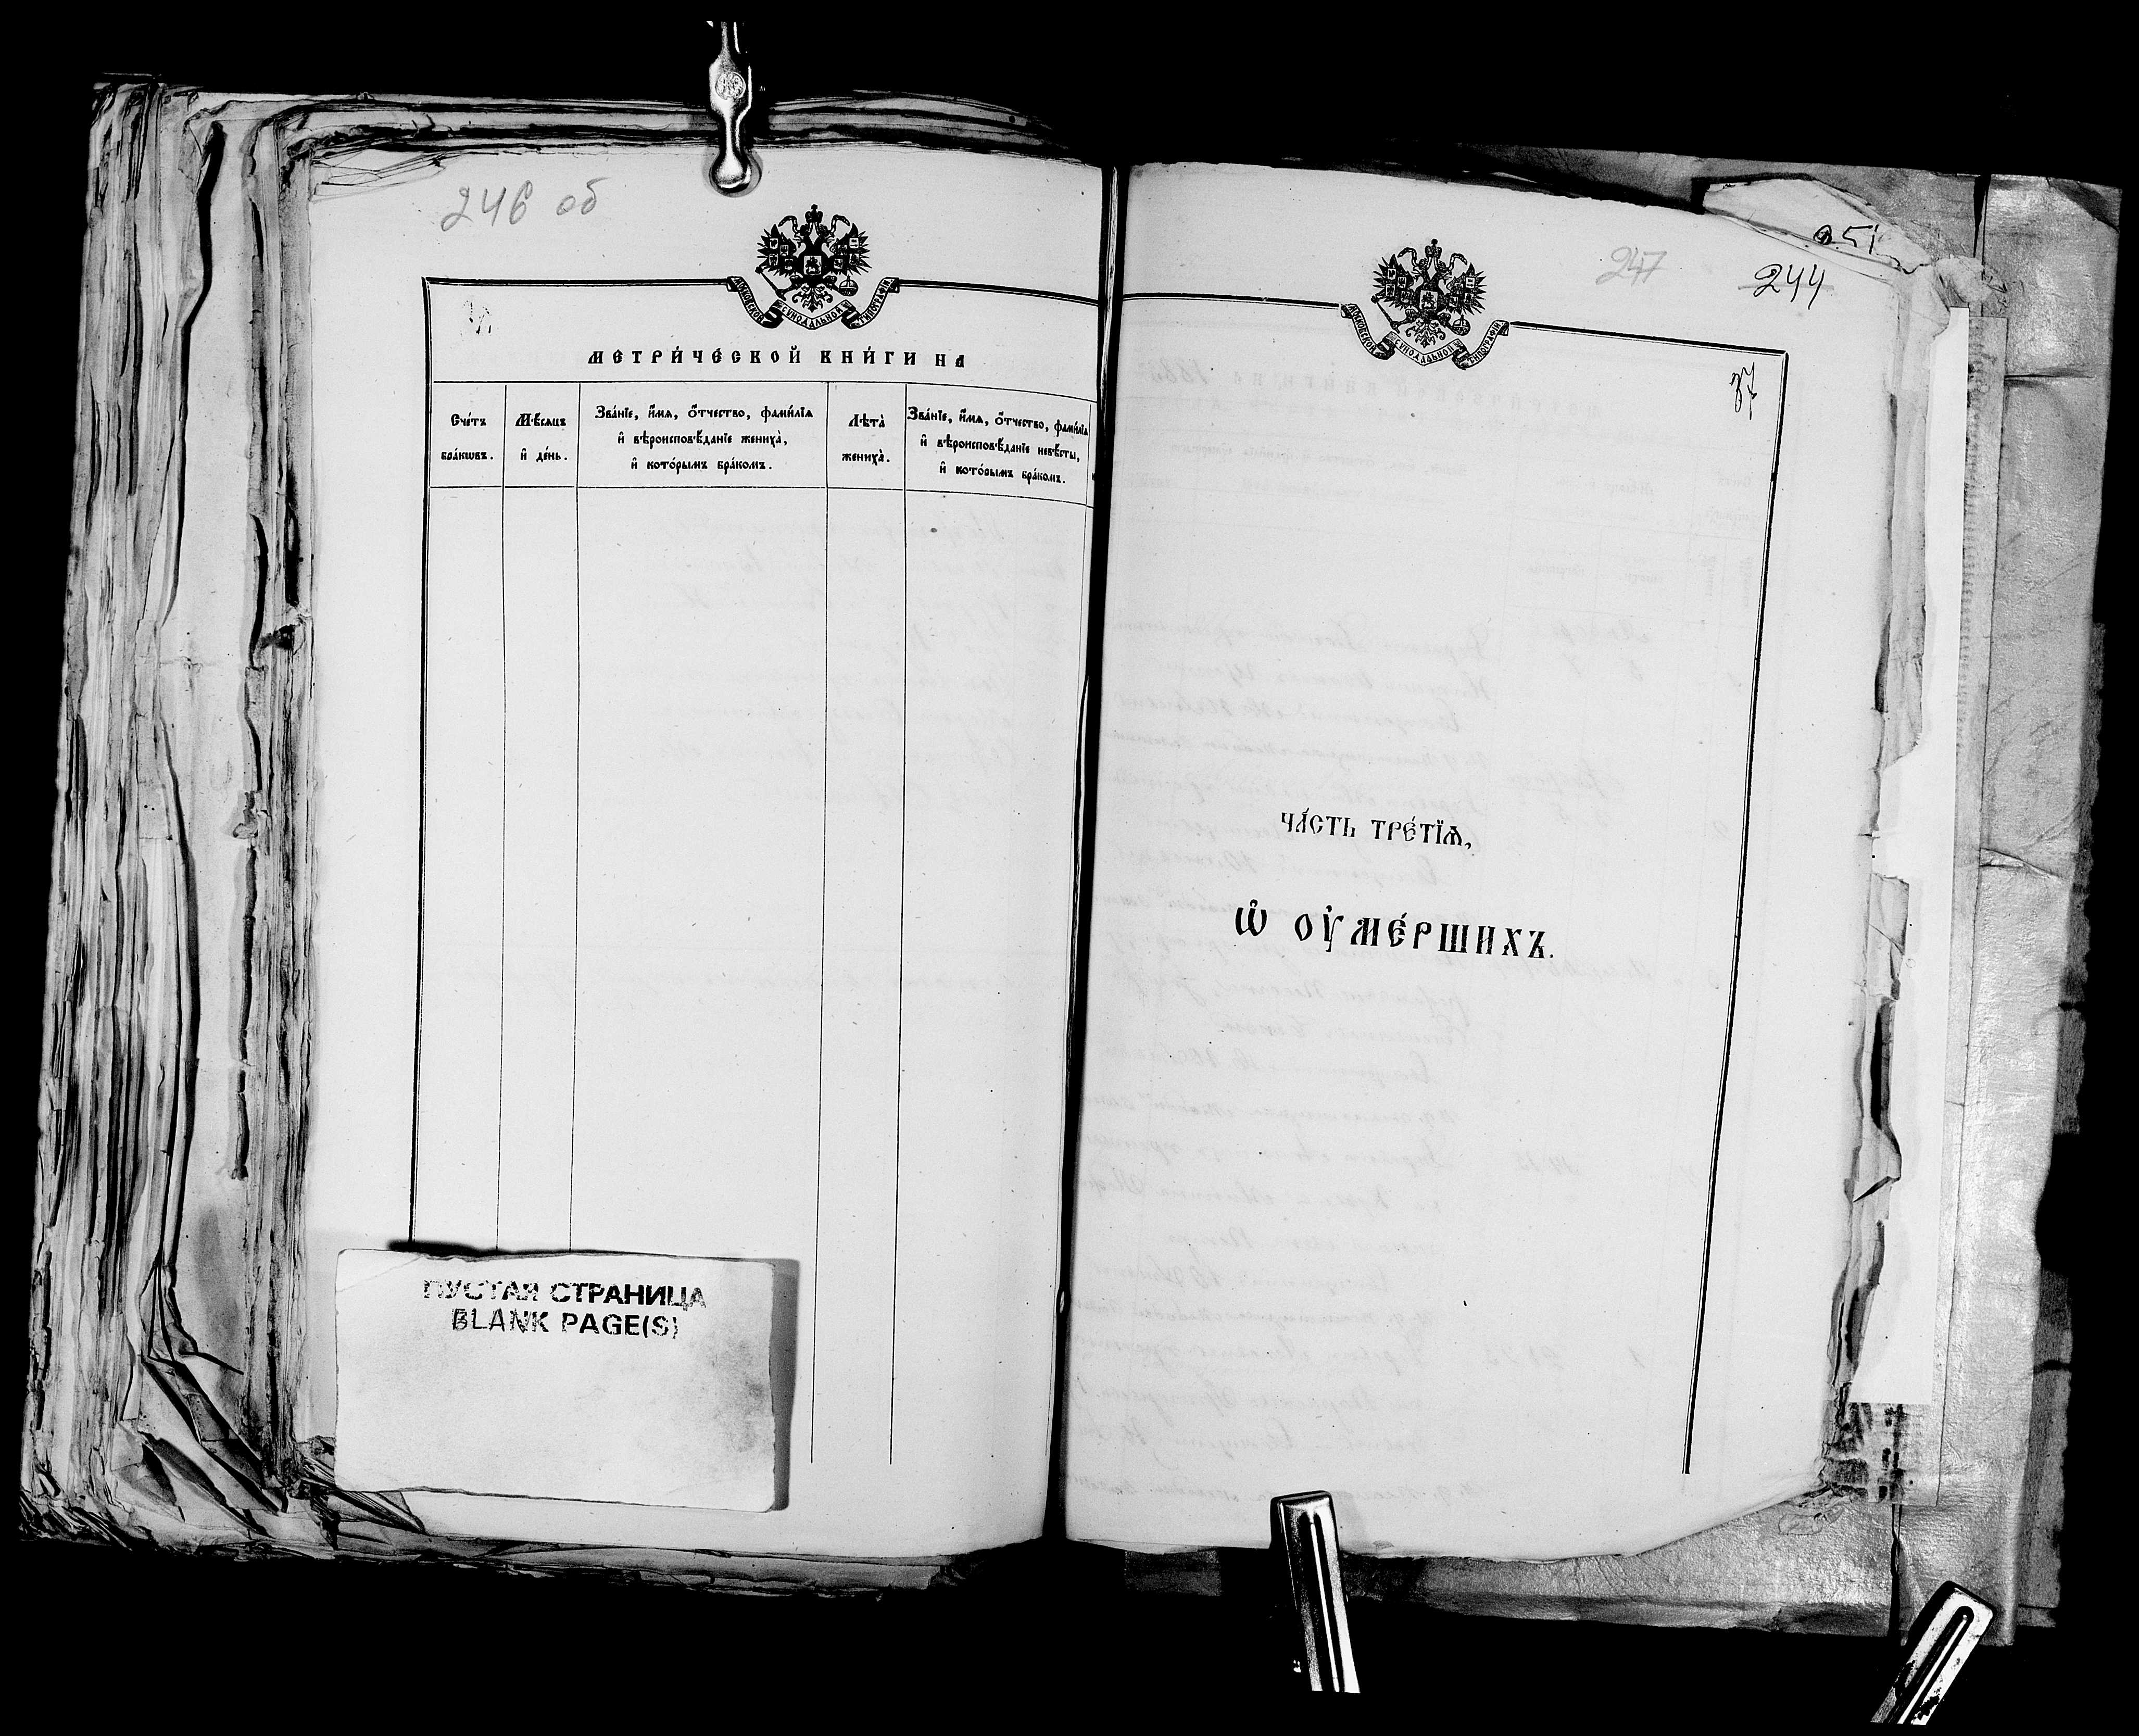 246 об
МОСКОВСКОЙ СѴНОДАЛЬНОЙ ТИПОГРАФІИ
МЕТРИ́ЧЕСКОЙ КНИ́ГИ НА
Сче́тъ бра́кѡвъ.
Мѣ́сяцъ и҆ де́нь.
Зва́нїе, и҆́мѧ, ѻ҆́тчество, фами́лїѧ
и҆ вѣроисповѣ́данїе женихà,
и҆ кото́рымъ бра́комъ.
Лѣтà женихà.
Зва́нїе, и҆́мѧ, ѻ҆́тчество, фами́лїѧ
и҆ вѣроисповѣ́данїе невѣ́сты,
и҆ кото́рымъ бра́комъ.
ПУСТАЯ СТРАНИЦА
BLANK PAGE(S)
247
244
МОСКОВСКОЙ СѴНОДАЛЬНОЙ ТИПОГРАФІИ
37
ЧА́СТЬ ТРЕ́ТЇѦ,
Ѡ҆ ОУ҆МЕ́РШИХЪ.